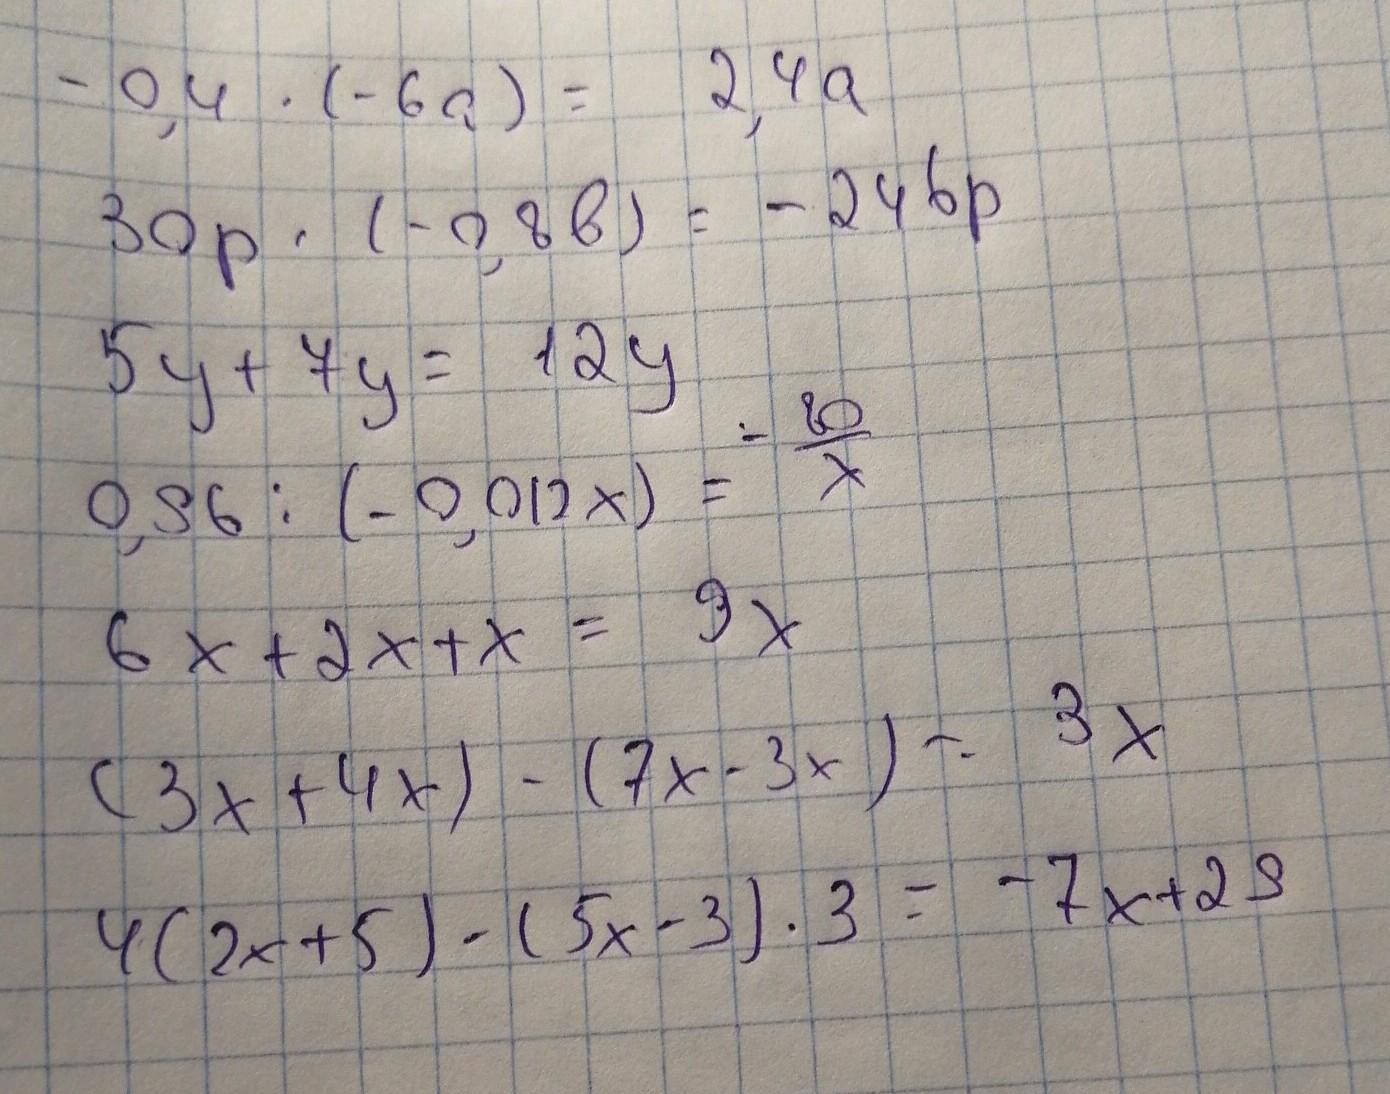 -0,4 · (-6a) = 2,4a
30p · (-0,8b) = -24bp
5y + 7y = 12y
0,96 : (-0,012x) = - 80/x
6x + 2x + x = 9x
(3x + 4x) - (7x - 3x) = 3x
4(2x + 5) - (5x - 3) · 3 = -7x + 29